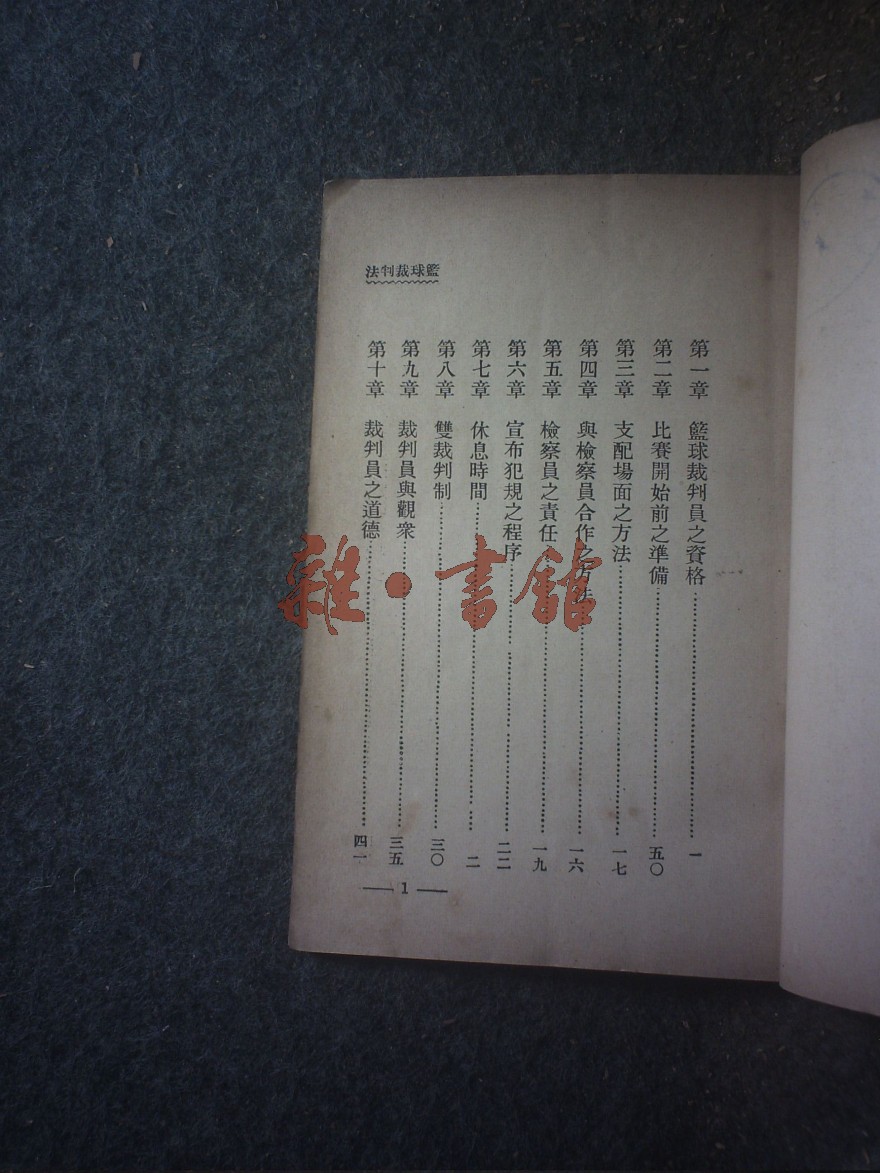 籃球裁判法
第一章 籃球裁判員之資格……一
第二章 比賽開始前之準備……五〇
第三章 支配場面之方法……一七
第四章 與檢察員合作之方法……一六
第五章 檢察員之責任……一九
第六章 宣布犯規之程序……二二
第七章 休息時間……二
第八章 雙裁判制……三〇
第九章 裁判員與觀衆……三五
第十章 裁判員之道德……四一
1
雜·書館